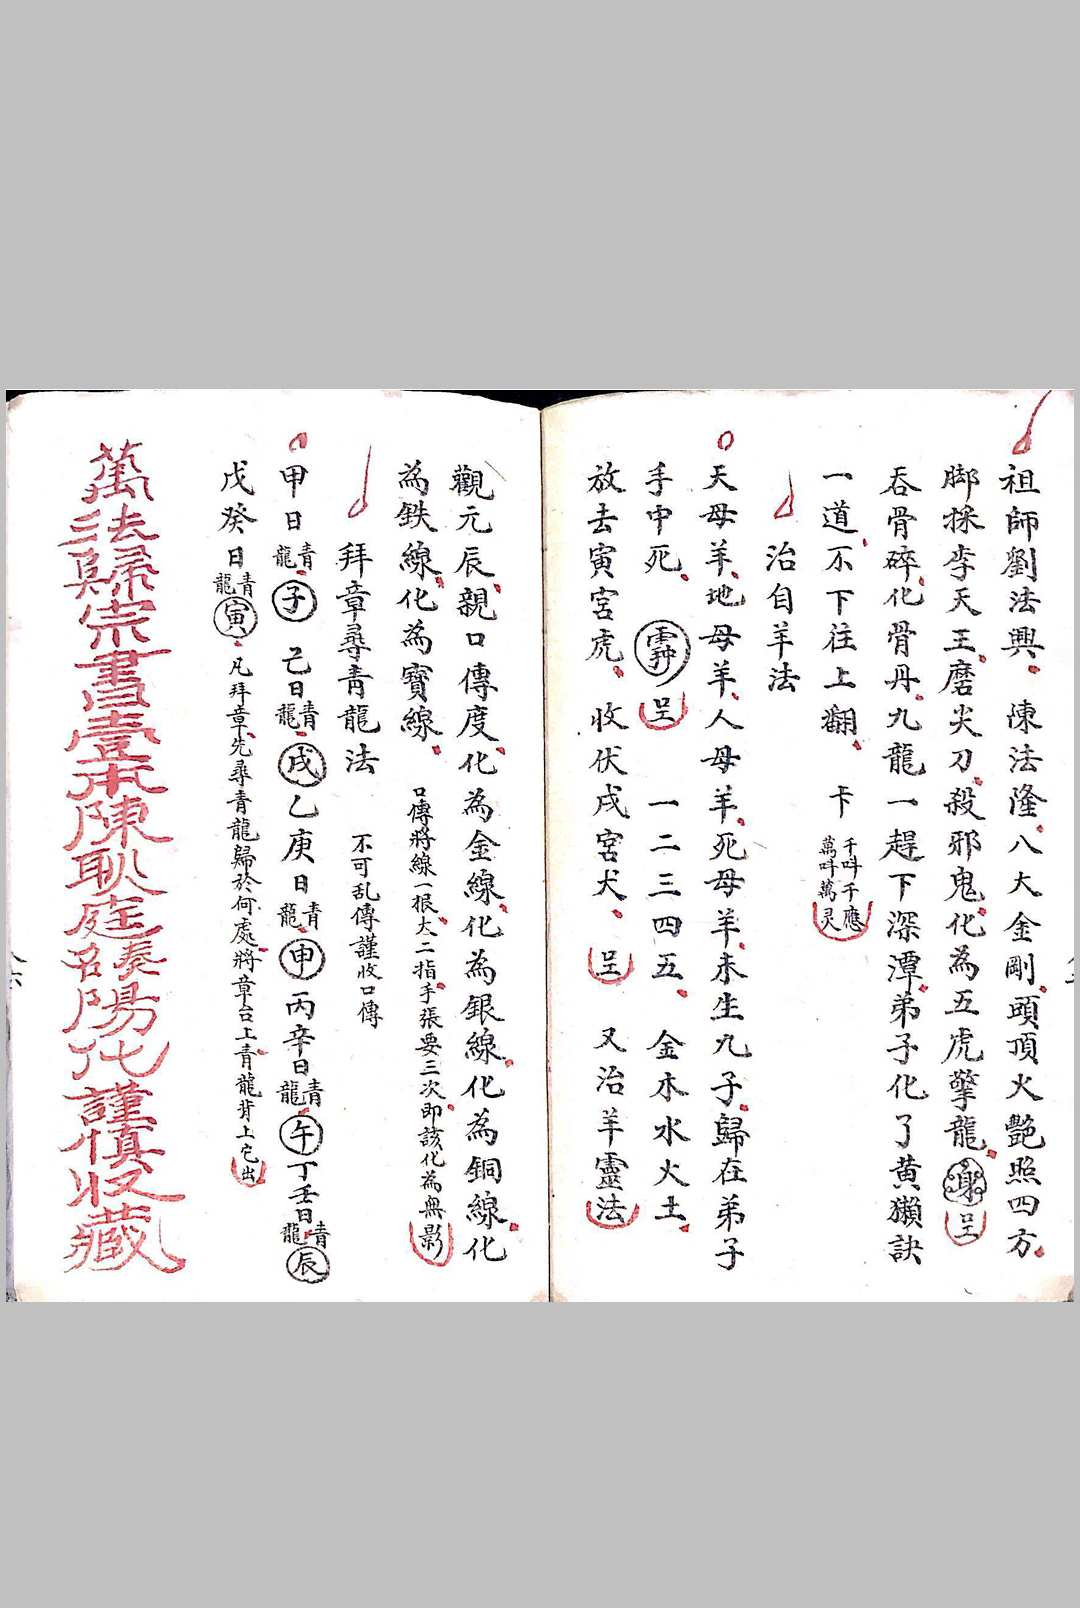 祖師劉法興 陳法隆八大金剛頭頂火艷照四方
脚採李天王磨尖刀殺邪鬼化為五虎擎龍
吞骨碎化骨丹九龍一趕下深潭弟子化了黄獺訣
一道不下往上翻 卡 千叫千應萬叫萬灵
治自羊法
天母羊地母羊人母羊死母羊未生九子歸在弟子
手中死 呈 一二三四五 金木水火土
放去寅宮虎 收伏戌宮犬 呈 又治羊靈法
觀元辰親口傳度化為金線化為銀線化為銅線化
為鉄線化為寶線 口傳將線一根大二指手張要三次即該化為無影
拜章尋青龍法 不可乱傳謹收口傳
甲日青龍子 己日青龍戌 乙庚日青龍申 丙辛日青龍午 丁壬日青龍辰
戊癸日青龍寅 凡拜章先尋青龍歸於何處將章台上青龍背上它出
萬法歸宗書壹本陳耿庭奏名陽代謹慎收藏